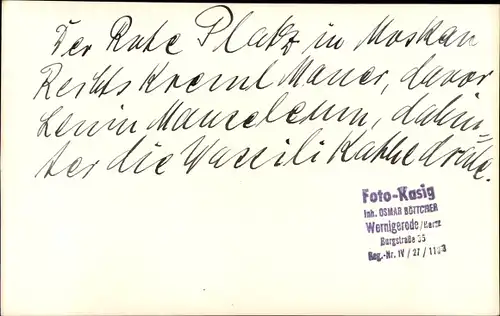 Der Rote Platz in Moskau
Rechts Kreml Mauer, davor
Lenin Mausoleum, dahin-
ter die Wassili Kathedrale.
Foto-Kasig
Inh. OSMAR BÖTTCHER
Wernigerode/Harz
Burgstraße 35
Reg.-Nr. IV / 27 / 1133